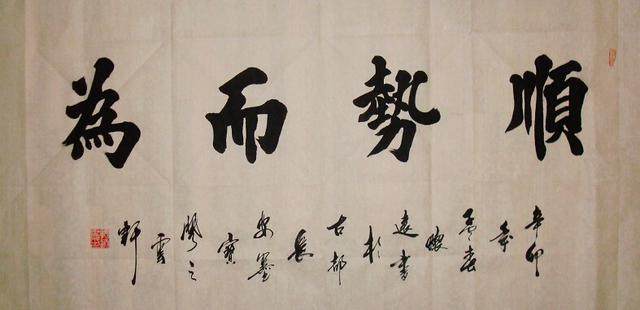 順勢而為
辛卯年孟春遠書於古都長安墨寶閣之雲軒